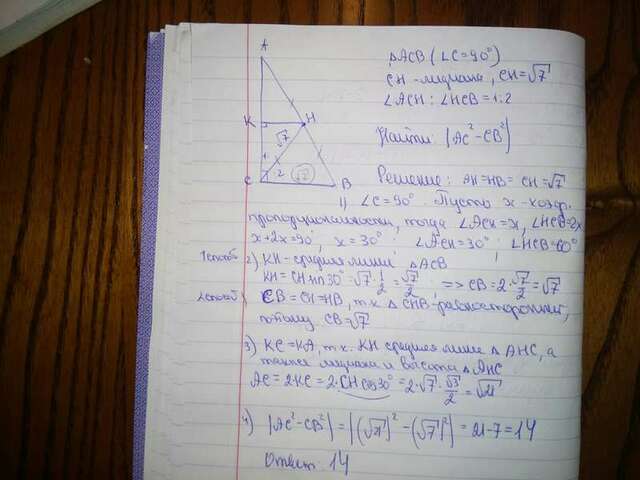 A
K
H
√7
1
2
√7
C
B
ΔACB (∠C=90°)
CH - медиана, CH=√7
∠ACH : ∠HCB = 1:2
Найти: |AC²-CB²|
Решение: AH=HB= CH=√7
1) ∠C=90°. Пусть x - коэф.
пропорциональности, тогда ∠ACH=x, ∠HCB=2x
x+2x=90°, x=30° ∠ACH=30°; ∠HCB=60°
1 способ 2) KH - средняя линия ΔACB
KH=CH sin30°=√7·1/2=√7/2, => CB=2·√7/2=√7
2 способ) CB=CH=HB, т.к. ΔCHB - равносторонний,
потому CB=√7
3) KC=KA, т.к. KH средняя линия ΔAHC, а
также медиана и высота ΔAHC
AC=2KC=2·CH cos30°=2·√7·√3/2=√21
4) |AC²-CB²|=|(√21)²-(√7)²|=21-7=14
Ответ: 14